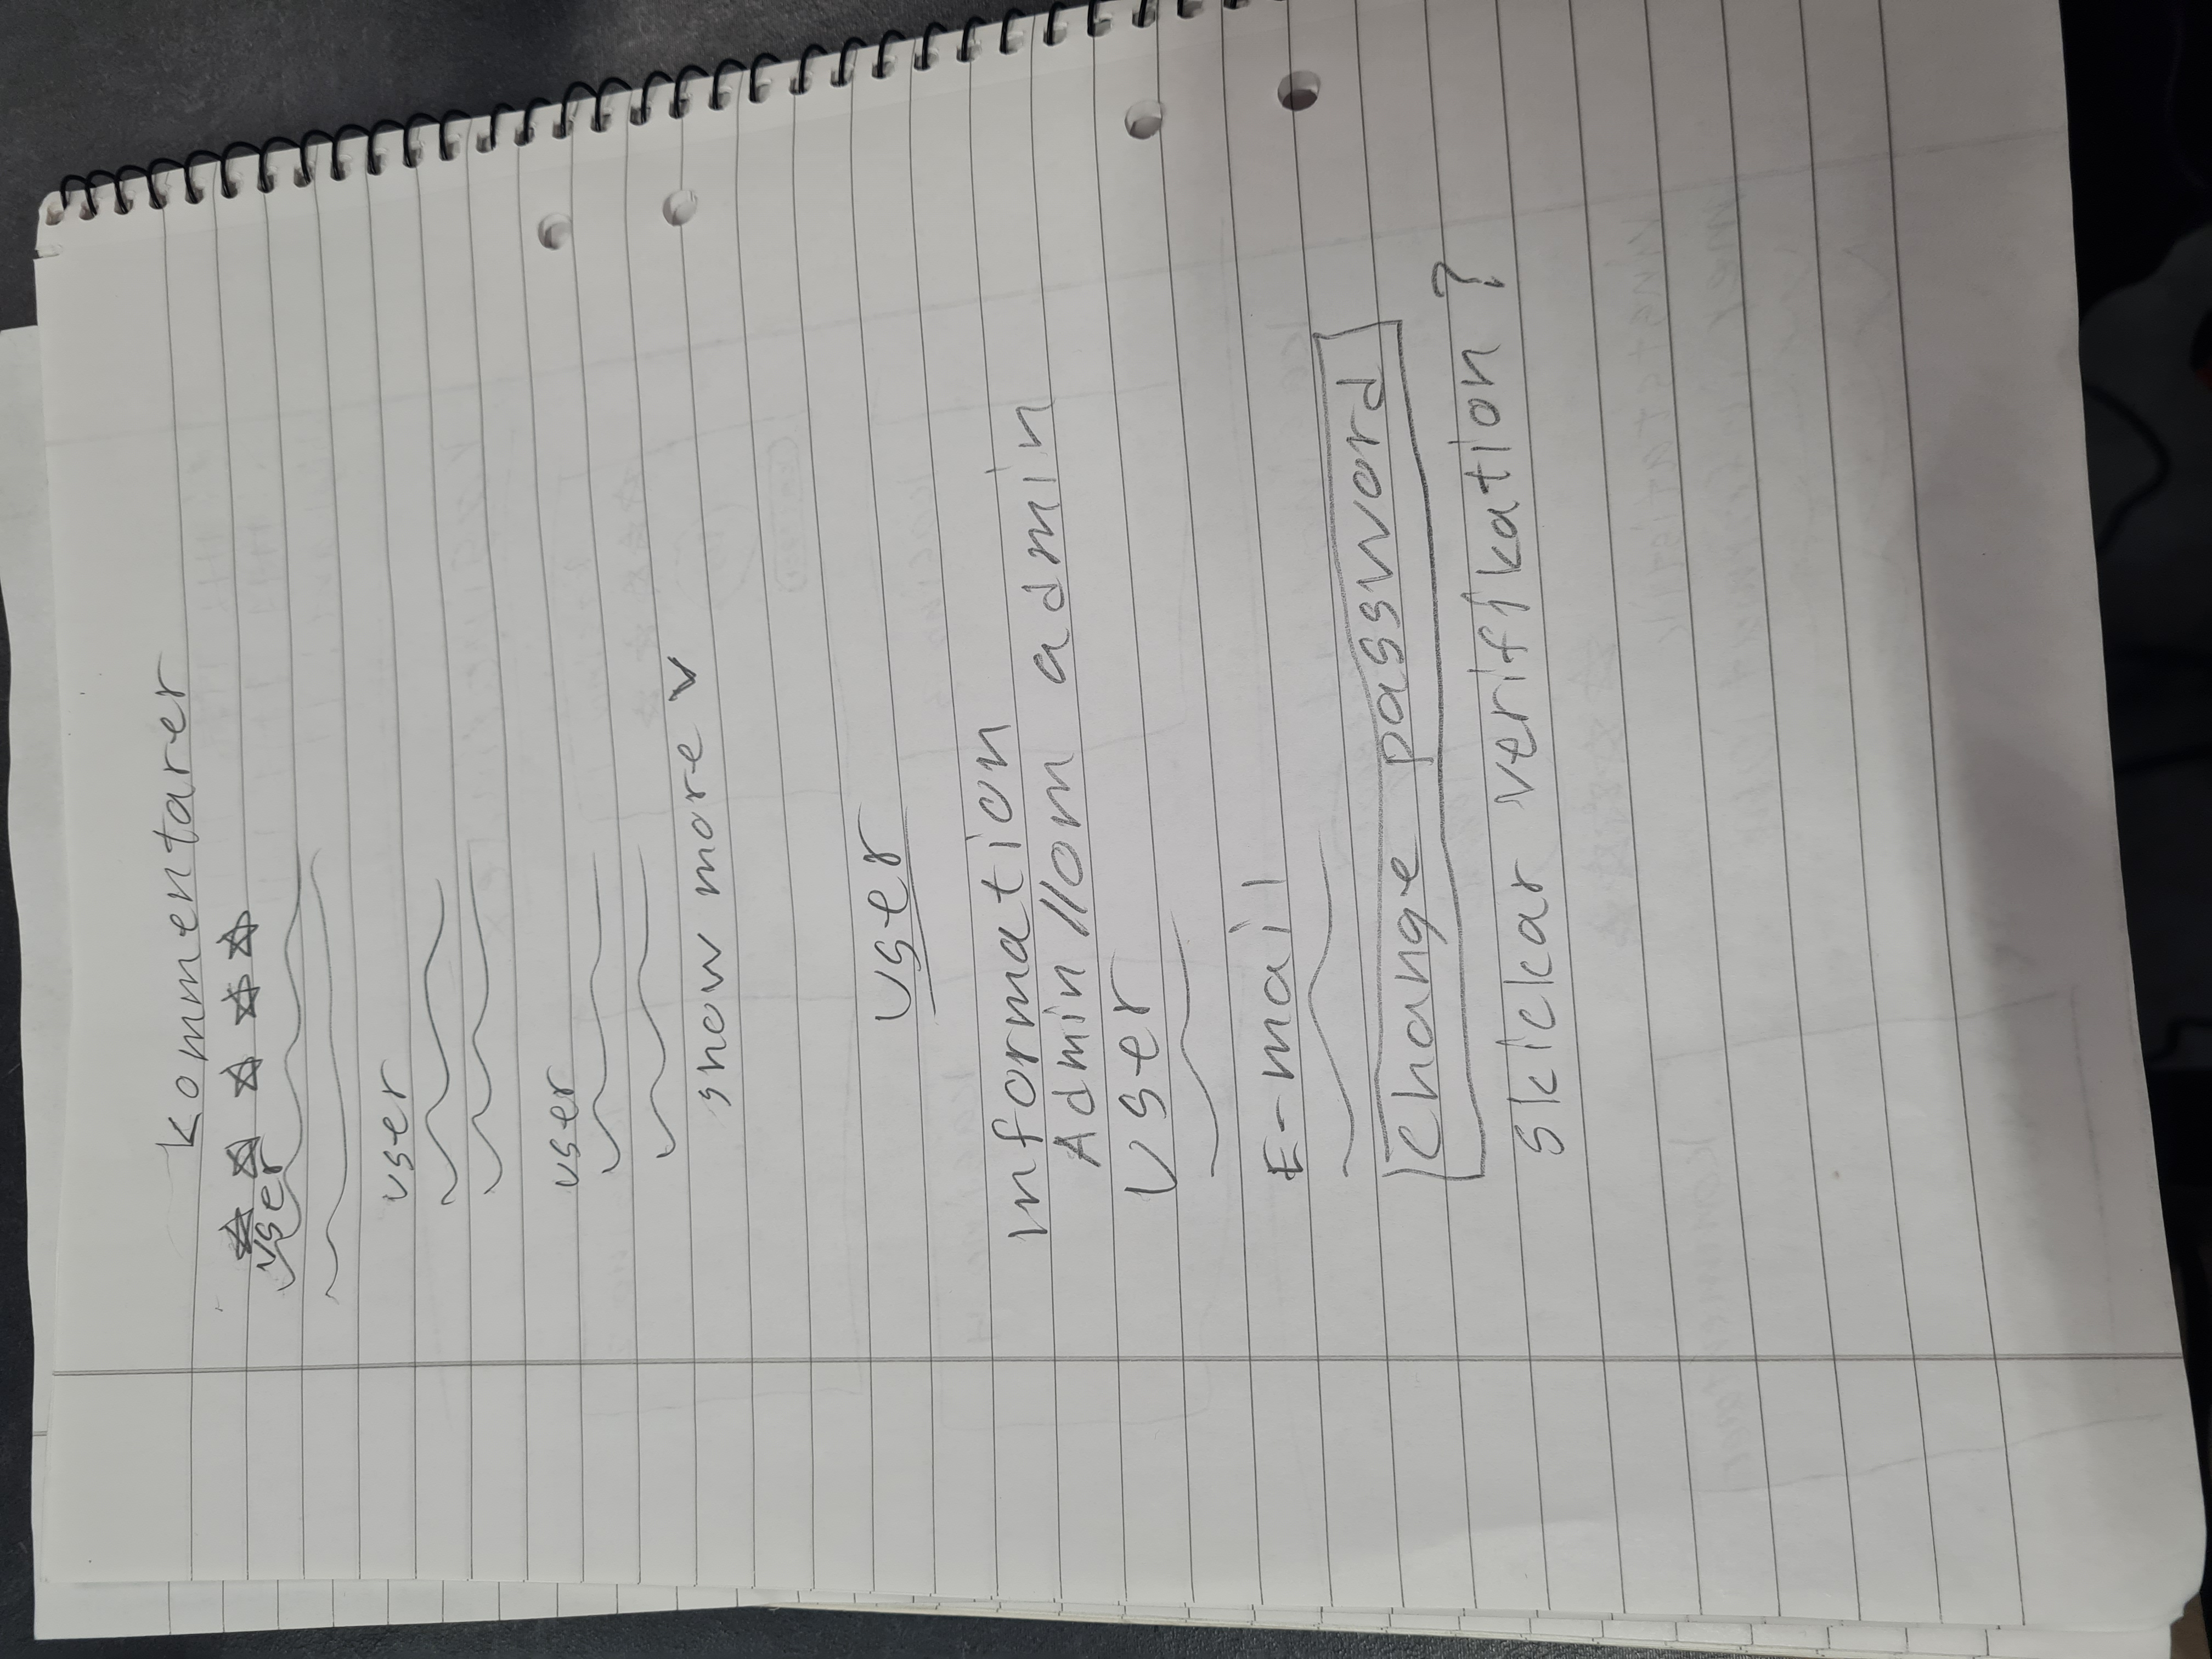 Kommentarer
☆ ☆ ☆ ☆ ☆
user
user
user
show more v
User
Information
Admin //om admin
User
E-mail
Change password
skickar verifikation?